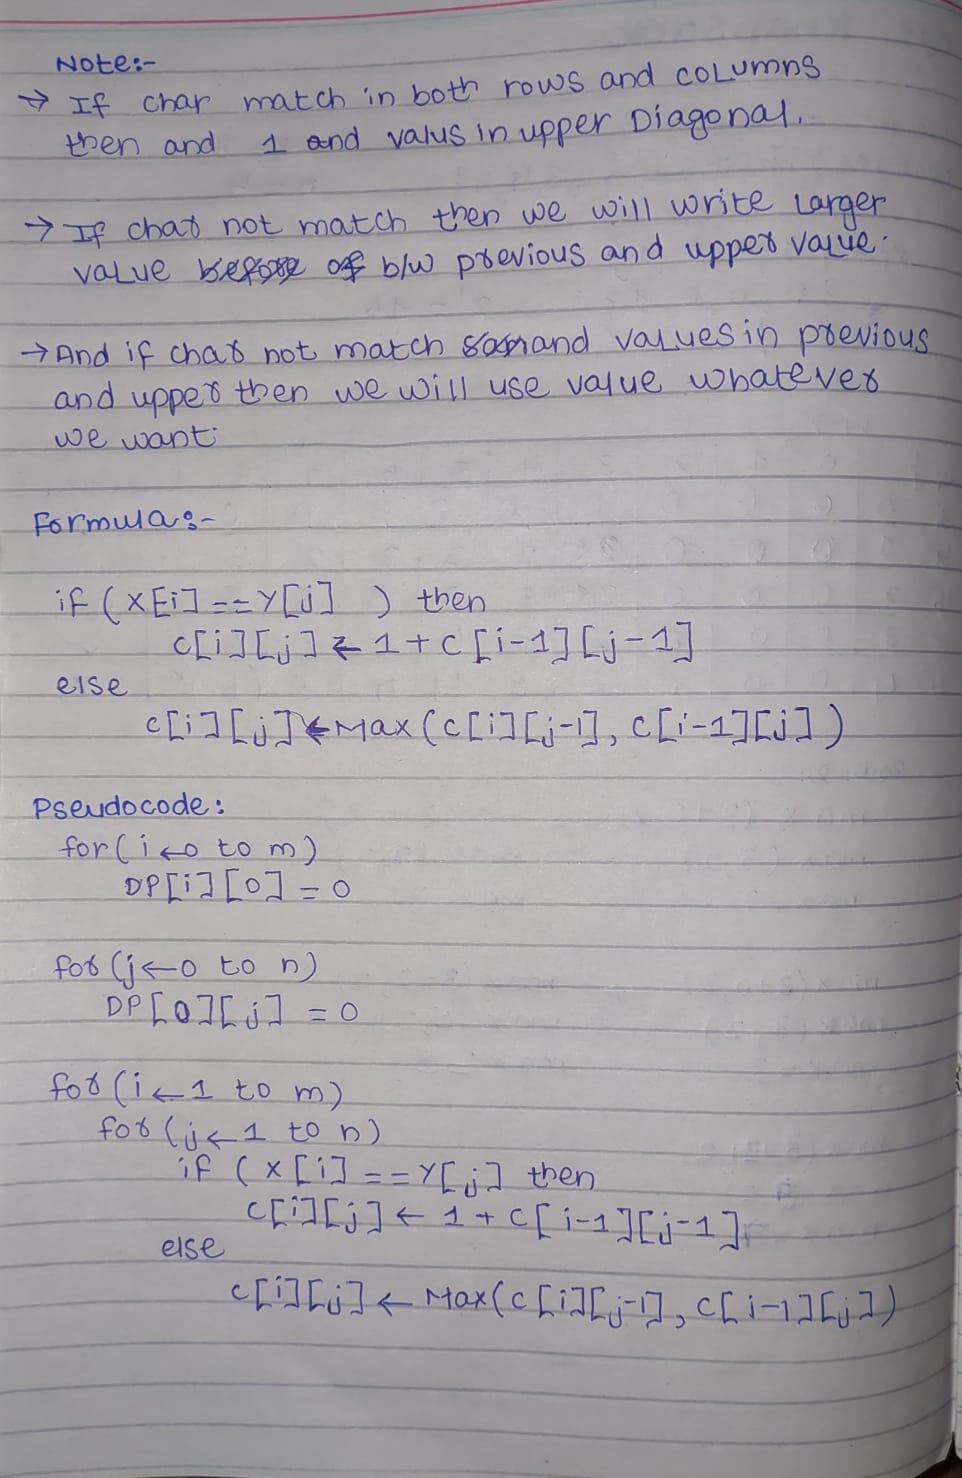 Note:-
→ If char match in both rows and columns
then and 1 and valus in upper Diagonal.
→ If char not match then we will write Larger
value before of b/w previous and upper value.
→ And if char not match and values in previous
and upper then we will use value whatever
we want.
Formula:-
if (X[i] == Y[j] ) then
c[i][j] ← 1 + c[i-1][j-1]
else
c[i][j] ← Max(c[i][j-1], c[i-1][j])
Pseudocode:
for(i←0 to m)
DP[i][0] = 0
for(j←0 to n)
DP[0][j] = 0
for(i←1 to m)
for(j←1 to n)
if (X[i] == Y[j] then
c[i][j] ← 1 + c[i-1][j-1]
else
c[i][j] ← Max(c[i][j-1], c[i-1][j])